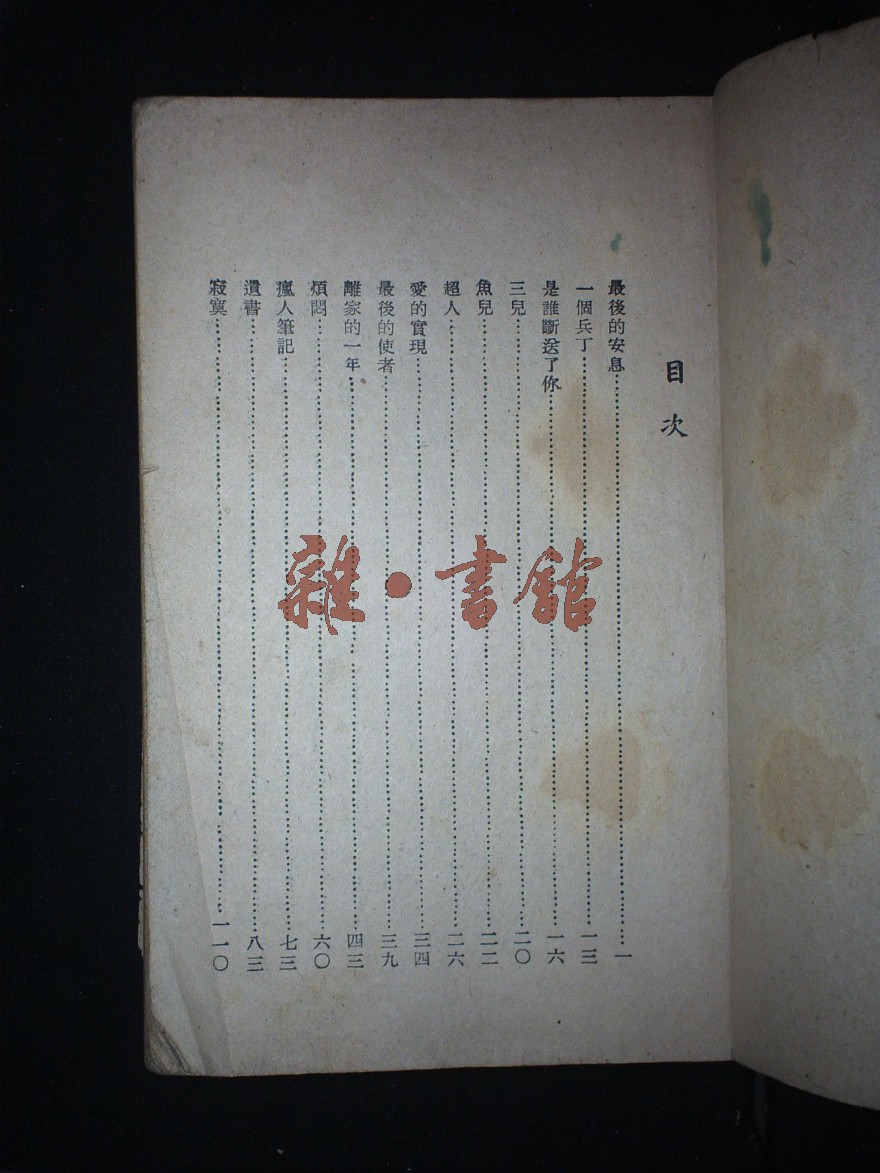 目次
最後的安息…………一
一個兵丁…………一三
是誰斷送了你…………一六
三兒…………二〇
魚兒…………二二
超人…………二六
愛的實現…………三四
最後的使者…………三九
離家的一年…………四三
煩悶…………六〇
瘋人筆記…………七三
遺書…………八三
寂寞…………一一〇
雜·書館